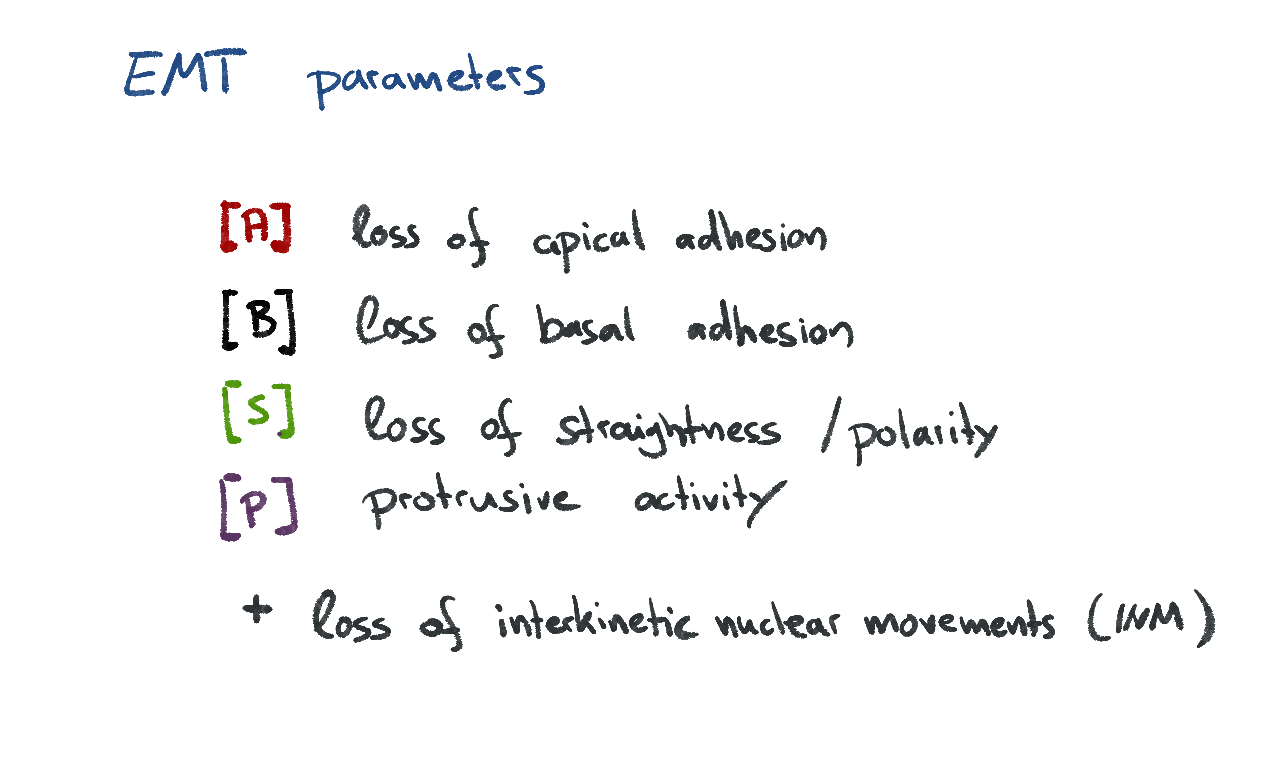 EMT parameters
[A] loss of apical adhesion
[B] loss of basal adhesion
[S] loss of straightness / polarity
[P] protrusive activity
+ loss of interkinetic nuclear movements (INM)